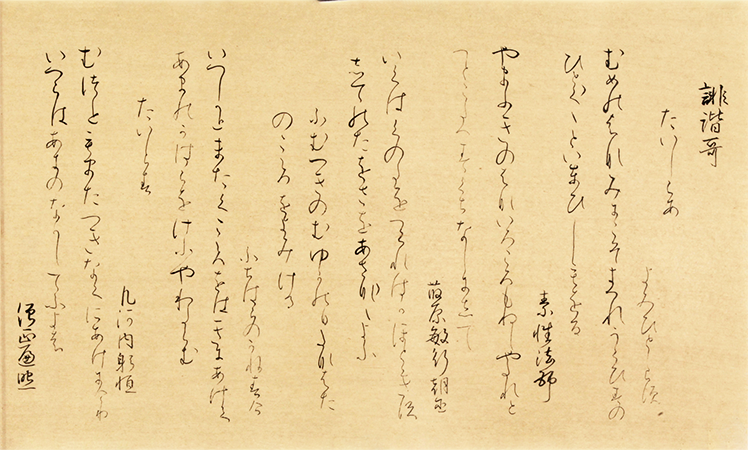 誹諧哥
たいしらす
よみひとしらす
むめのはなみにこそきつれうくひすの
ひとく〱といとひしもをる
素性法師
やまふきのはないろころもぬしやたれと
とへとこたへすくちなしにして
藤原敏行朝臣
いくはくのたをつくれはかほとゝきす
してのたをさをあさな〱よふ
ふむつきのむゆかのひたなはた
のこゝろをよみける
ふちはらのかねすけ
いつしかとまたくこゝろをはきにあけて
あまのかはらをけふやわたらむ
たいしらす
凡河内躬恒
むつこともまたつきなくにあけぬめり
いつらはあきのなかしてふよは
僧正遍照